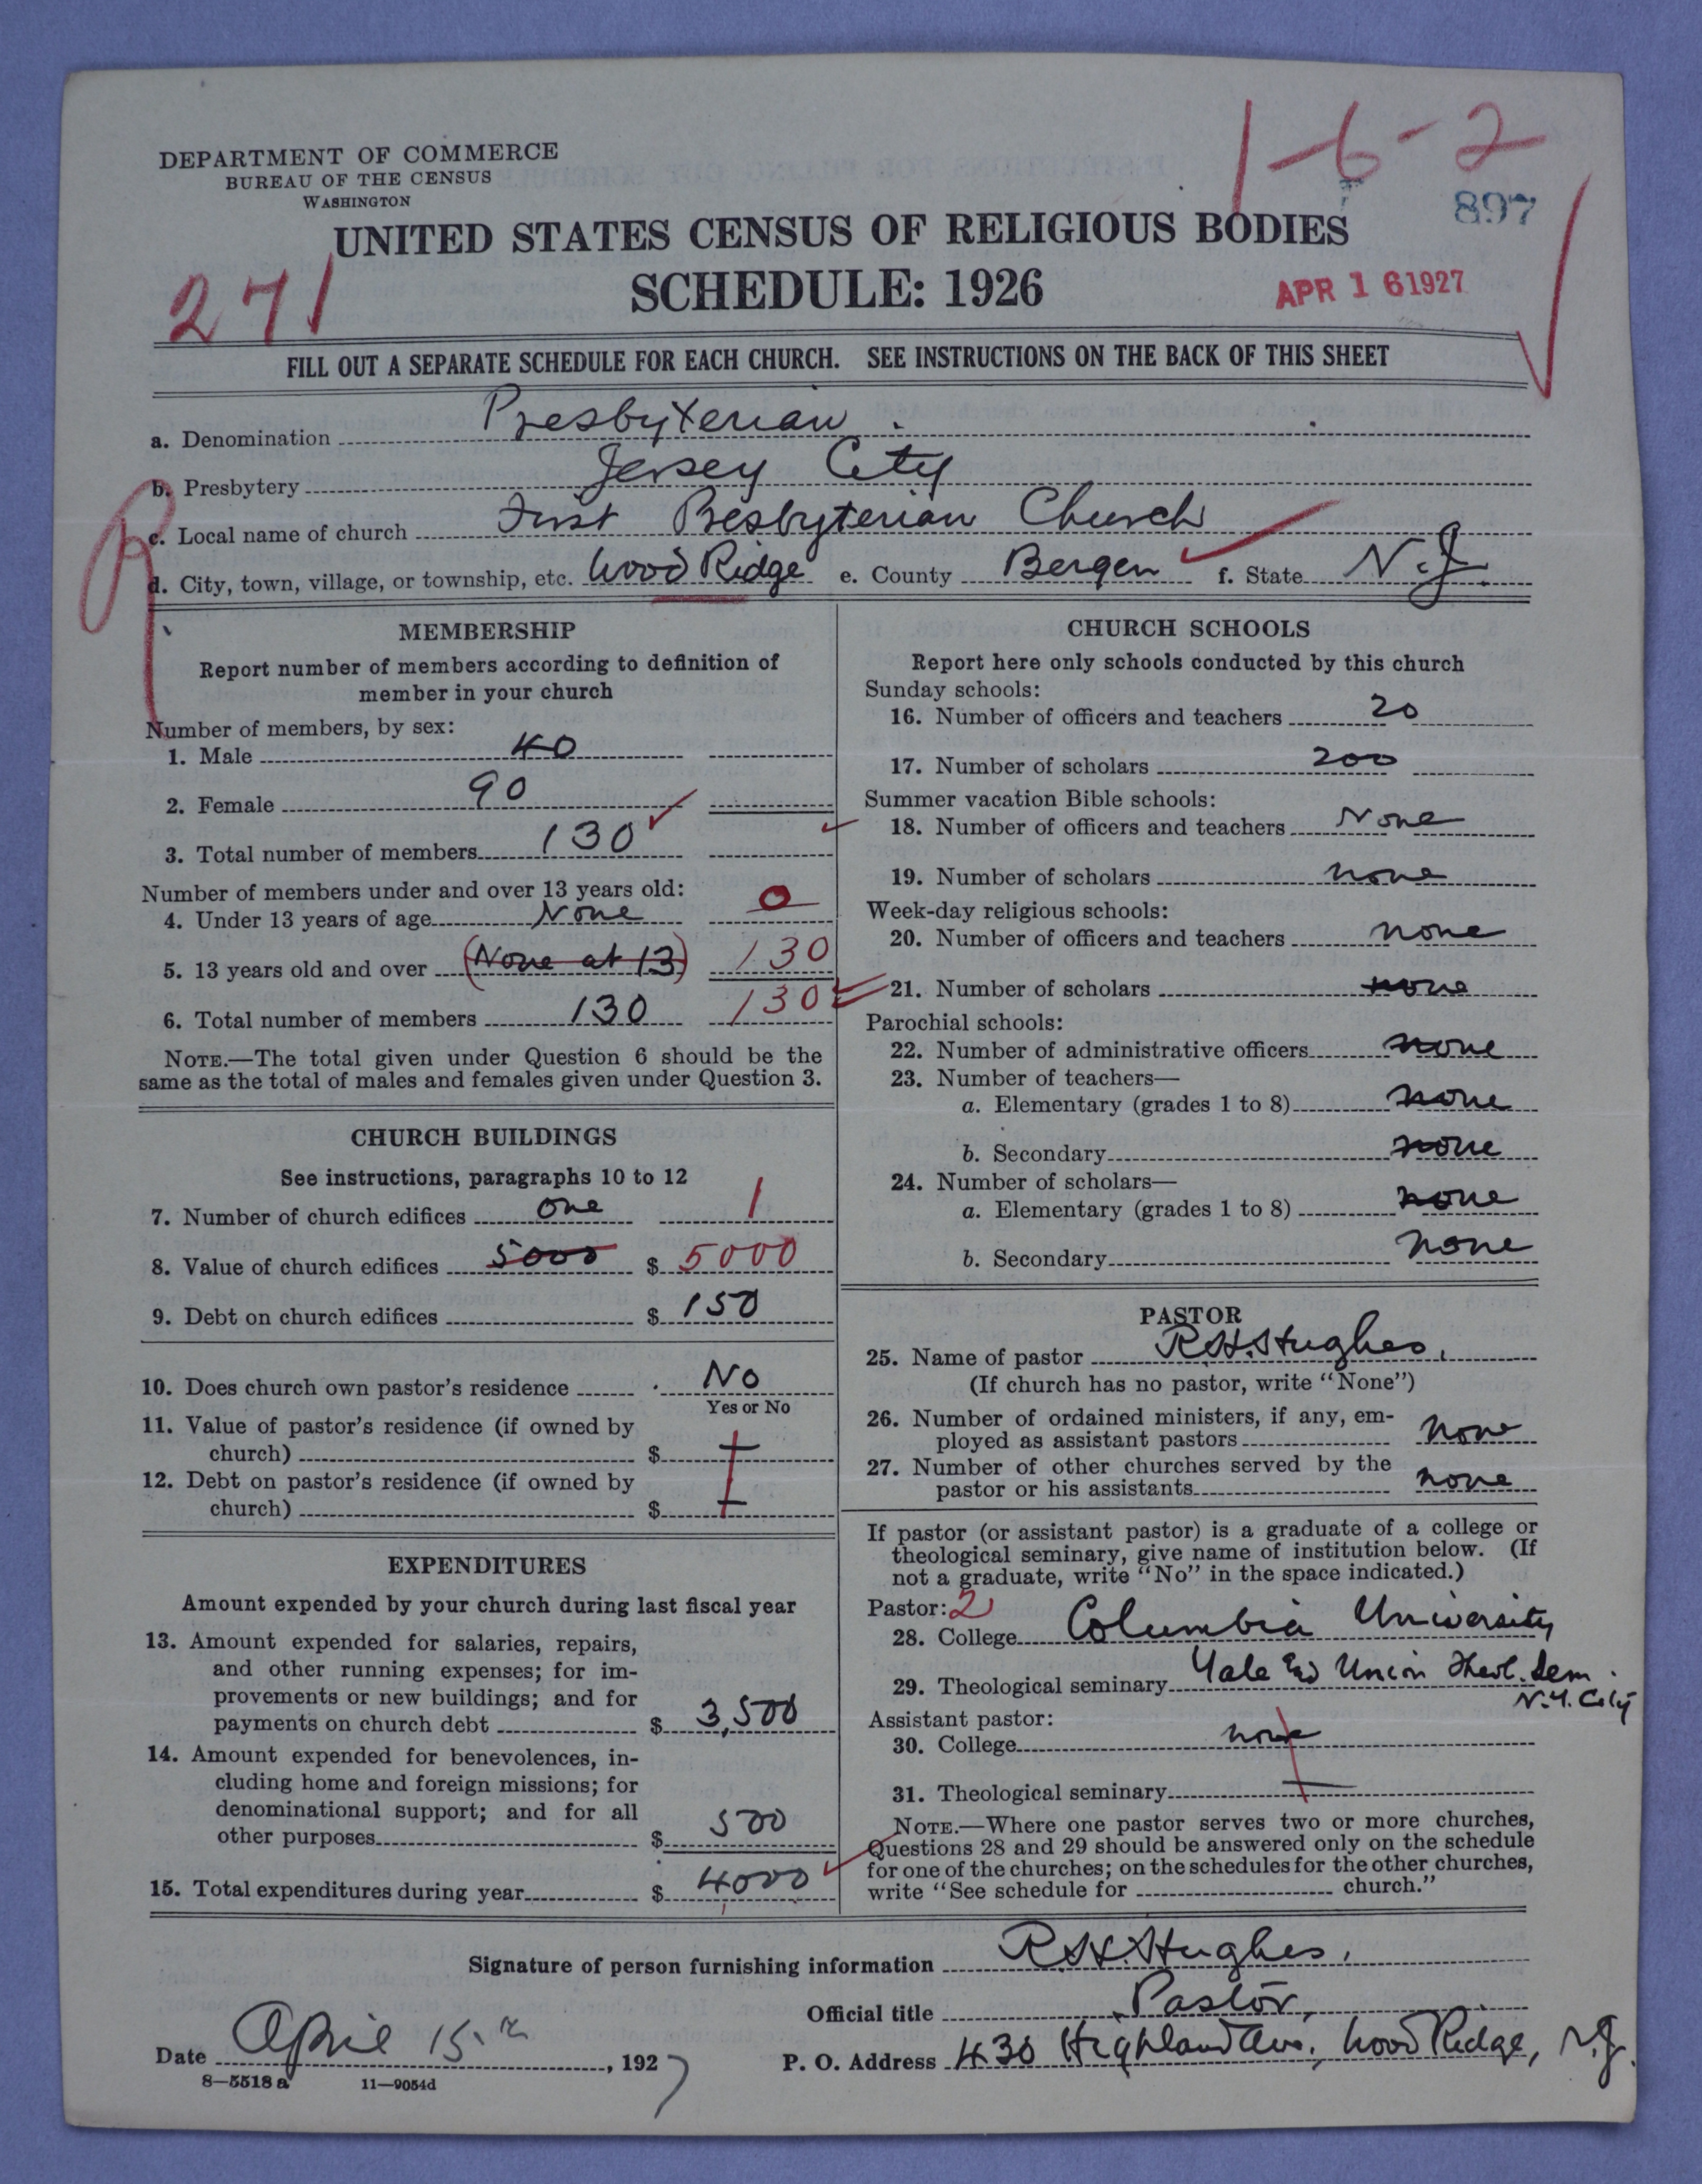 1-6-2
DEPARTMENT OF COMMERCE
BUREAU OF THE CENSUS
WASHINGTON
897
UNITED STATES CENSUS OF RELIGIOUS BODIES
271
SCHEDULE: 1926
APR 16 1927
FILL OUT A SEPARATE SCHEDULE FOR EACH CHURCH. SEE INSTRUCTIONS ON THE BACK OF THIS SHEET
a. Denomination Presbyterian
b. Presbytery Jersey City
c. Local name of church First Presbyterian Church
d. City, town, village, or township, etc. Wood Ridge e. County Bergen f. State N.J.
MEMBERSHIP
Report number of members according to definition of
member in your church
Number of members, by sex:
1. Male 40
2. Female 90
3. Total number of members 130
Number of members under and over 13 years old:
4. Under 13 years of age None 0
5. 13 years old and over (None at 13) 130
6. Total number of members 130 130
NOTE.—The total given under Question 6 should be the
same as the total of males and females given under Question 3.
CHURCH BUILDINGS
See instructions, paragraphs 10 to 12
7. Number of church edifices one 1
8. Value of church edifices 5000 $ 5000
9. Debt on church edifices $ 150
10. Does church own pastor's residence No
Yes or No
11. Value of pastor's residence (if owned by
church) $
12. Debt on pastor's residence (if owned by
church) $
EXPENDITURES
Amount expended by your church during last fiscal year
13. Amount expended for salaries, repairs,
and other running expenses; for im-
provements or new buildings; and for
payments on church debt $ 3,500
14. Amount expended for benevolences, in-
cluding home and foreign missions; for
denominational support; and for all
other purposes $ 500
15. Total expenditures during year $ 4000
CHURCH SCHOOLS
Report here only schools conducted by this church
Sunday schools:
16. Number of officers and teachers 20
17. Number of scholars 200
Summer vacation Bible schools:
18. Number of officers and teachers None
19. Number of scholars none
Week-day religious schools:
20. Number of officers and teachers none
21. Number of scholars none
Parochial schools:
22. Number of administrative officers none
23. Number of teachers—
a. Elementary (grades 1 to 8) none
b. Secondary none
24. Number of scholars—
a. Elementary (grades 1 to 8) none
b. Secondary none
PASTOR
25. Name of pastor R.H. Hughes,
(If church has no pastor, write "None")
26. Number of ordained ministers, if any, em-
ployed as assistant pastors None
27. Number of other churches served by the
pastor or his assistants none
If pastor (or assistant pastor) is a graduate of a college or
theological seminary, give name of institution below. (If
not a graduate, write "No" in the space indicated.)
Pastor: 2
28. College Columbia University
29. Theological seminary Yale Union Theol. Sem.
N.Y. City
Assistant pastor:
30. College none
31. Theological seminary
NOTE.—Where one pastor serves two or more churches,
Questions 28 and 29 should be answered only on the schedule
for one of the churches; on the schedules for the other churches,
write "See schedule for church."
Signature of person furnishing information R.H. Hughes,
Official title Pastor,
Date April 15.th, 1927
P. O. Address 430 Highland Ave., Wood Ridge, N.J.
8—5518a 11—9054d